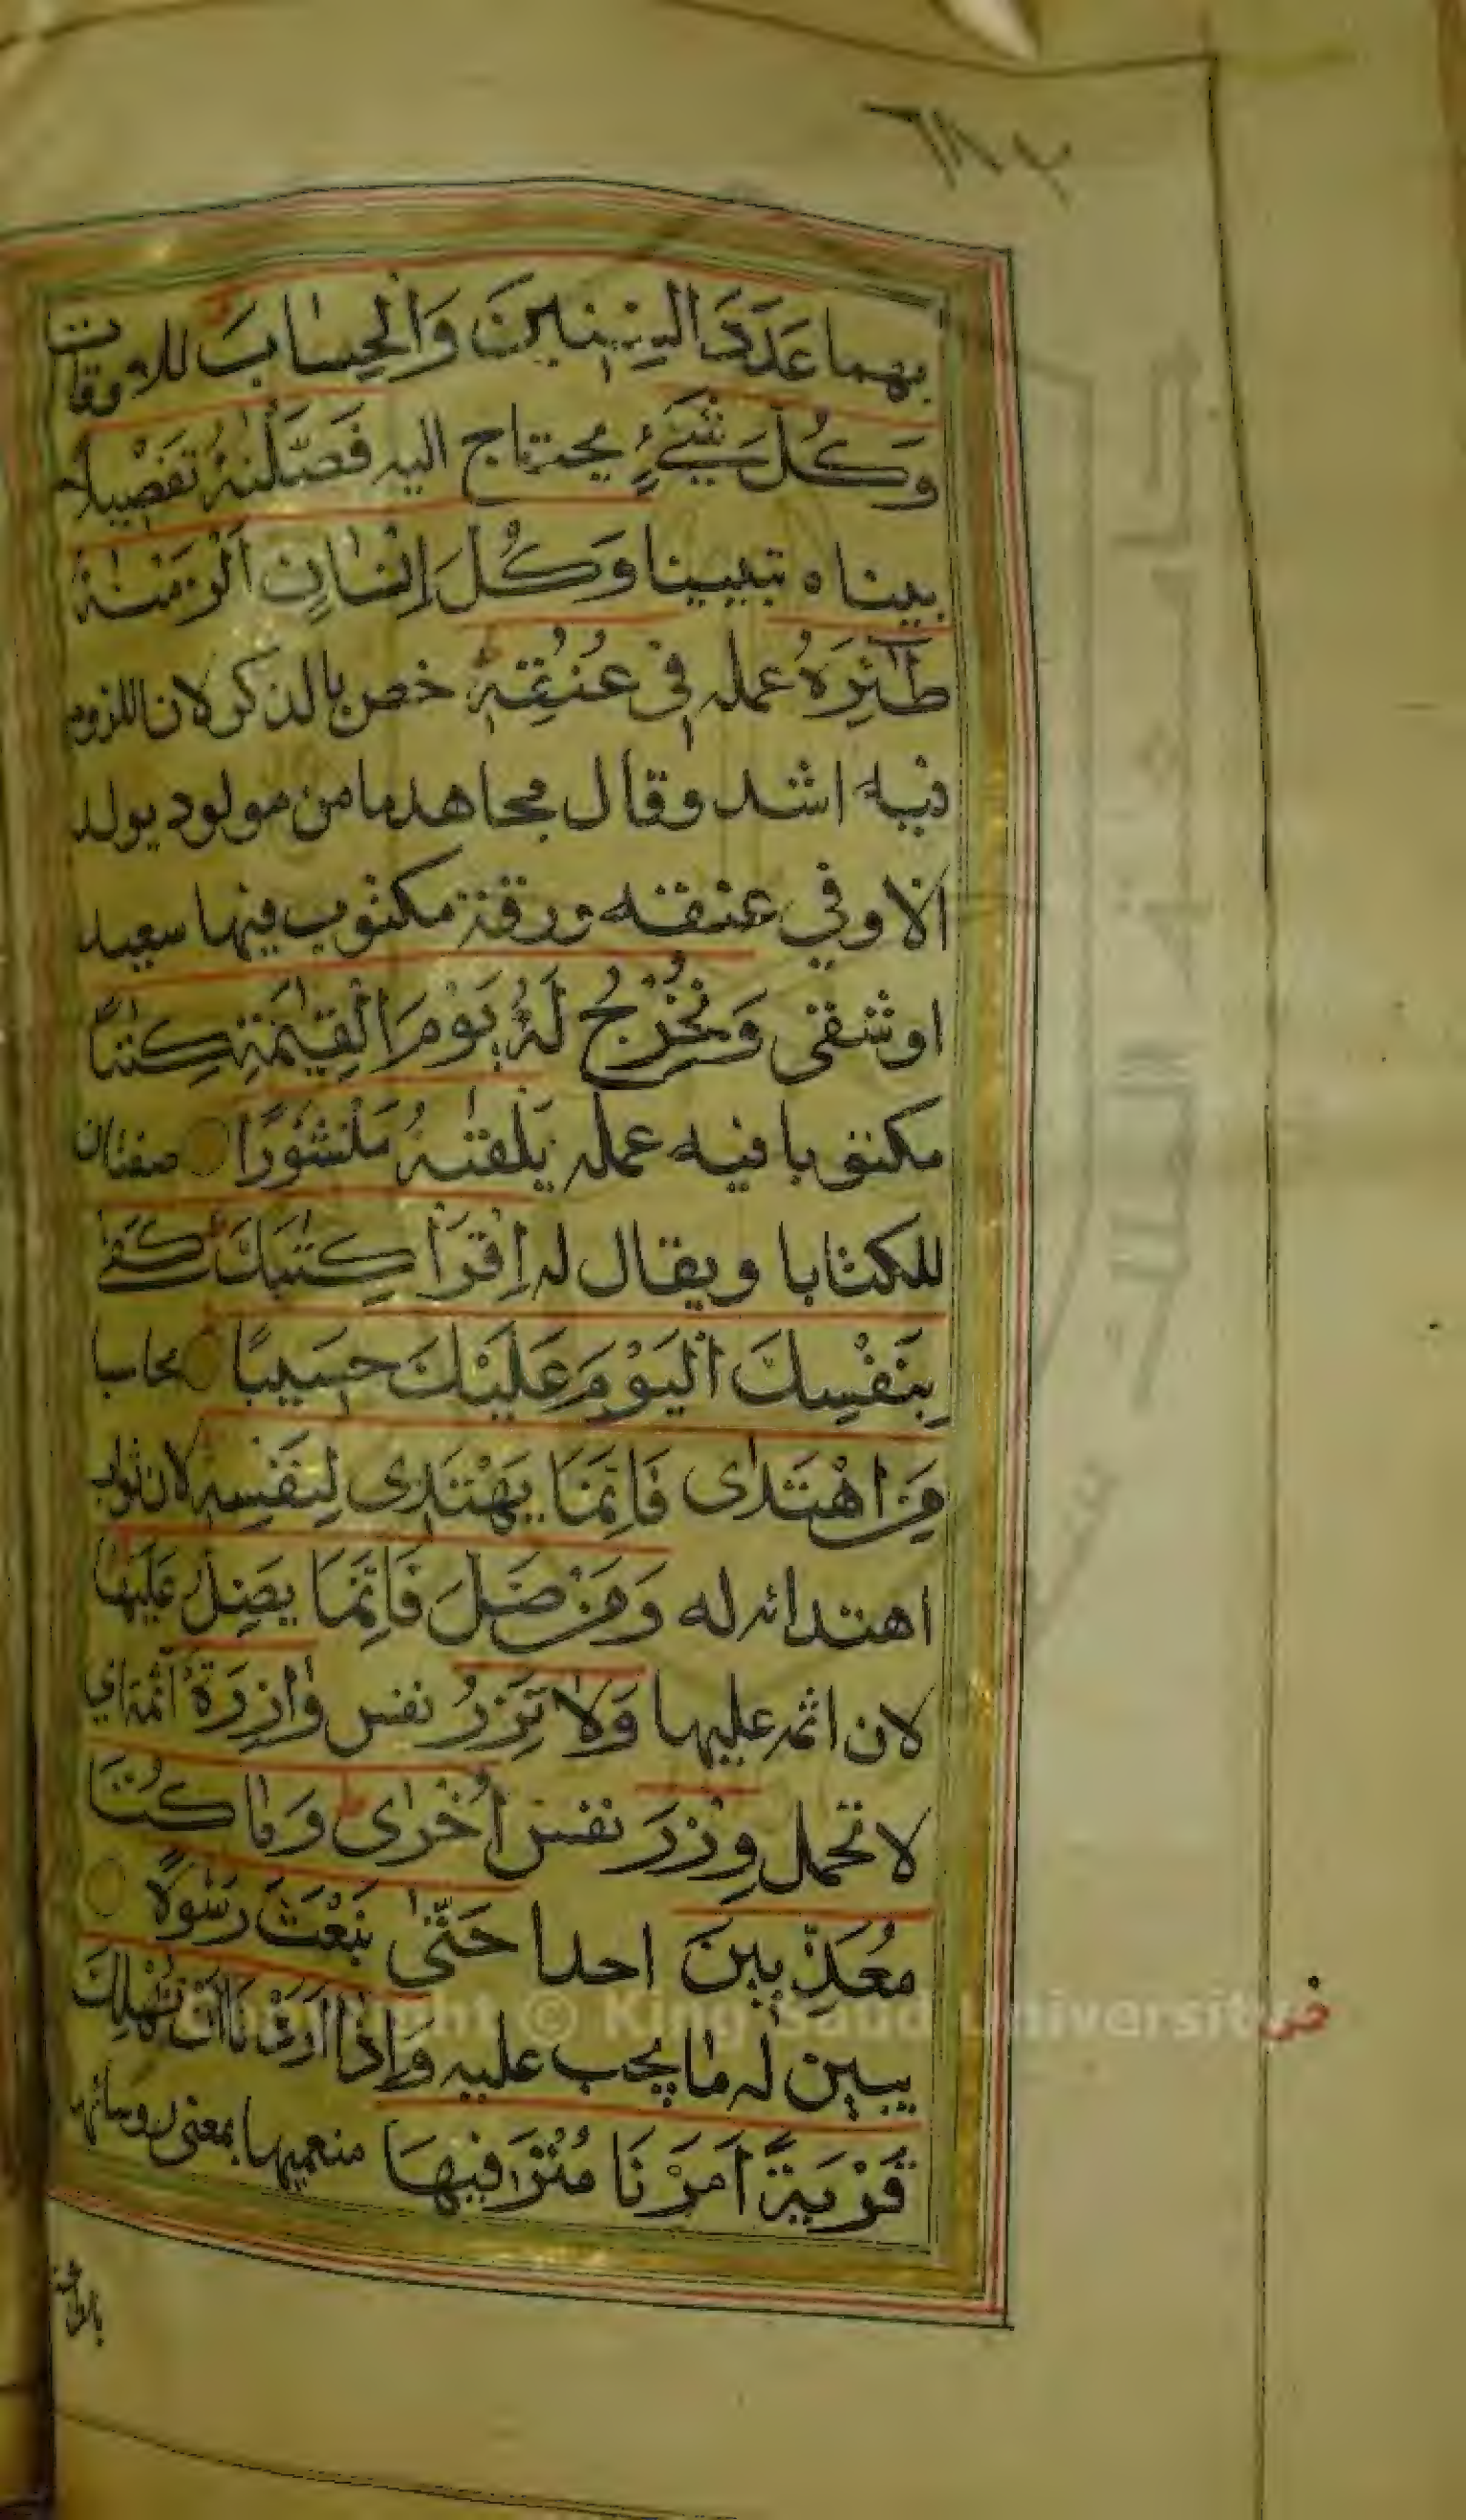 بهما عَدَدَ السِّنِينَ وَالْحِسٰابَ للاوقات
وَكُلَّ شَيْءٍ يحتاج اليه فَصَّلْنٰهُ تَفْصِيلاً
بيناه تبيينا وَكُلَّ اِنْسٰانٍ اَلْزَمْنٰهُ
طٰٓئِرَهُ عمله فِي عُنُقِهٖ خص بالذكر لان اللزوم
فيه اشد وقال مجاهد ما من مولود يولد
الا وفي عنقه ورقة مكتوب فيها سعيد
او شقى وَنُخْرِجُ لَهُ يَوْمَ الْقِيٰمَةِ كِتٰبًا
مكتوبا فيه عمله يَلْقٰيهُ مَنْشُورًا صفتان
للكتابا ويقال له اِقْرَأْ كِتٰبَكَ كَفٰى
بِنَفْسِكَ الْيَوْمَ عَلَيْكَ حَسِيبًا محاسبا
مَنِ اهْتَدٰى فَاِنَّمَا يَهْتَدِى لِنَفْسِهٖ لان ثواب
اهتدائه له وَمَنْ ضَلَّ فَاِنَّمَا يَضِلُّ عَلَيْهَا
لان اثمه عليها وَلاٰ تَزِرُ نفس وٰازِرَةٌ اثمة اي
لا تحمل وِزْرَ نفس اُخْرٰى وَمٰا كُنَّا
مُعَذِّبِينَ احدا حَتّٰى نَبْعَثَ رَسُولاً
يبين له ما يجب عليه وَاِذٰا اَرَدْنَا اَنْ نُهْلِكَ
قَرْيَةً اَمَرْنَا مُتْرَفِيهَا منعميها بمعنى روسائها
Copyright © King Saud University